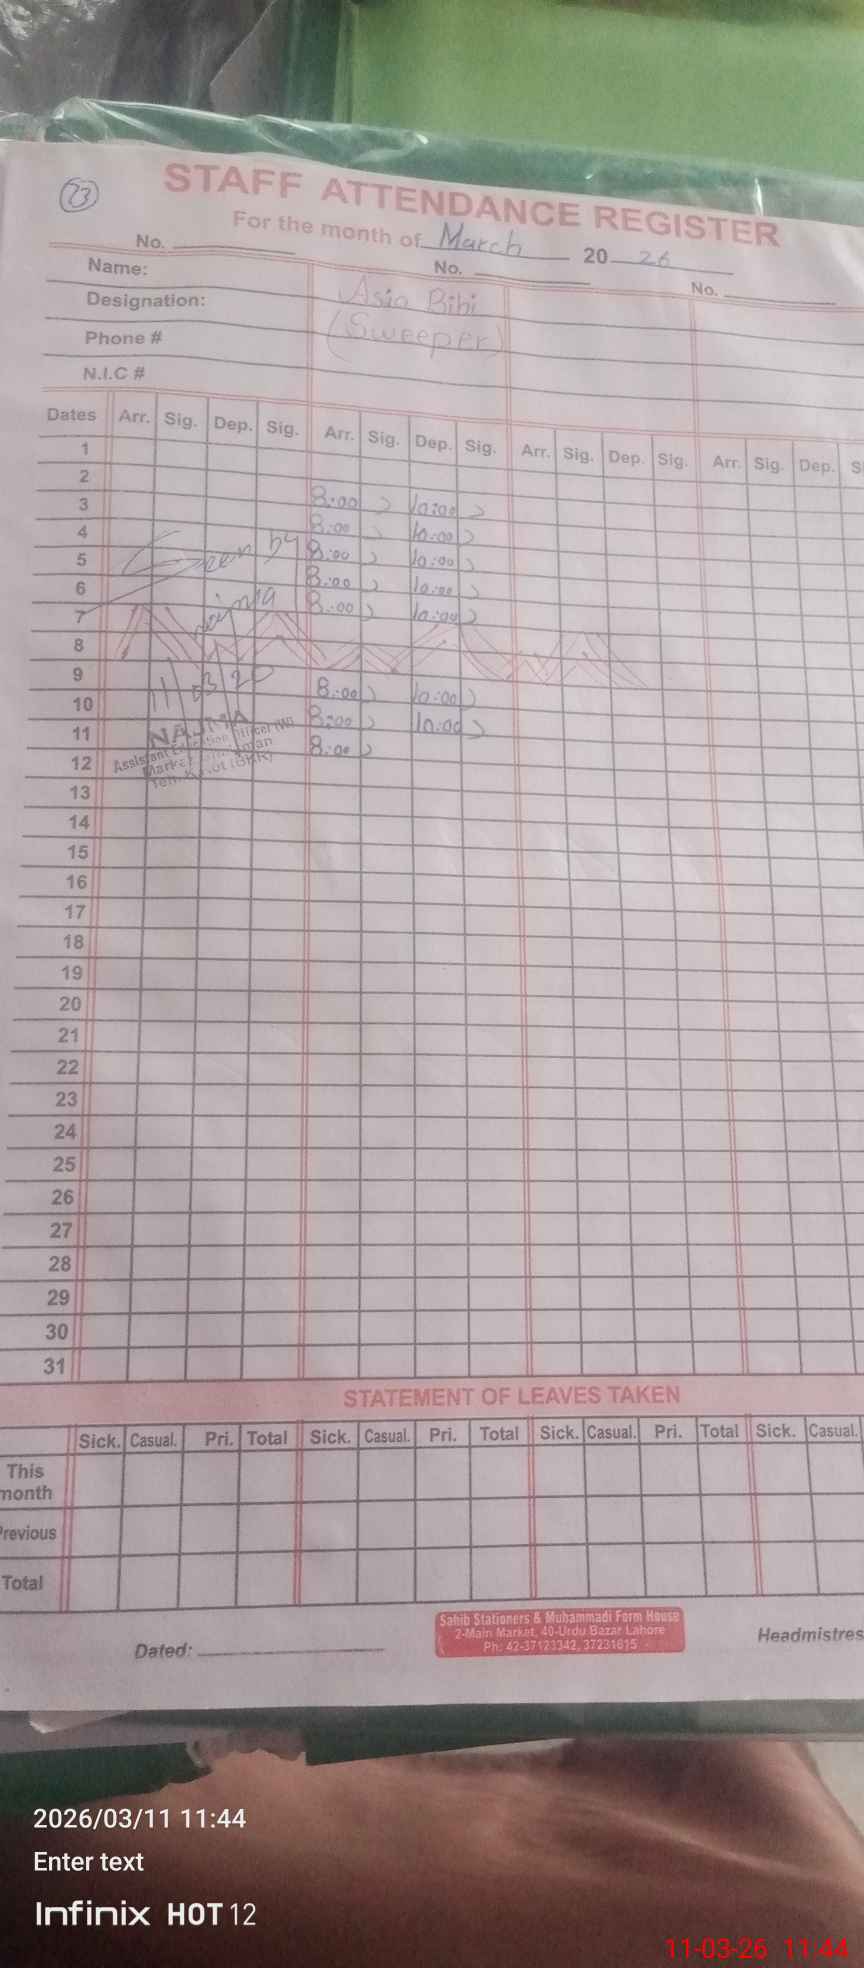 23
STAFF ATTENDANCE REGISTER
For the month of March 20 26
No. No. No.
Name: Asia Bibi
Designation: (Sweeper)
Phone #
N.I.C #
Dates Arr. Sig. Dep. Sig. Arr. Sig. Dep. Sig. Arr. Sig. Dep. Sig. Arr. Sig. Dep. S
1
2
3 8:00 10:00
4 8:00 10:00
5 Seen by 8:00 10:00
6 8:00 10:00
7 najma 8:00 10:00
8
9
10 11/03/26 8:00 10:00
11 8:00 10:00
NAJMA
Assistant Education Officer (W)
12 8:00
13
14
15
16
17
18
19
20
21
22
23
24
25
26
27
28
29
30
31
STATEMENT OF LEAVES TAKEN
Sick. Casual. Pri. Total Sick. Casual. Pri. Total Sick. Casual. Pri. Total Sick. Casual.
This
month
Previous
Total
Sahib Stationers & Muhammadi Form House
2-Main Market, 40-Urdu Bazar Lahore
Ph: 42-37123342, 37231615
Dated: Headmistres
2026/03/11 11:44
Enter text
Infinix HOT 12
11-03-26 11:44